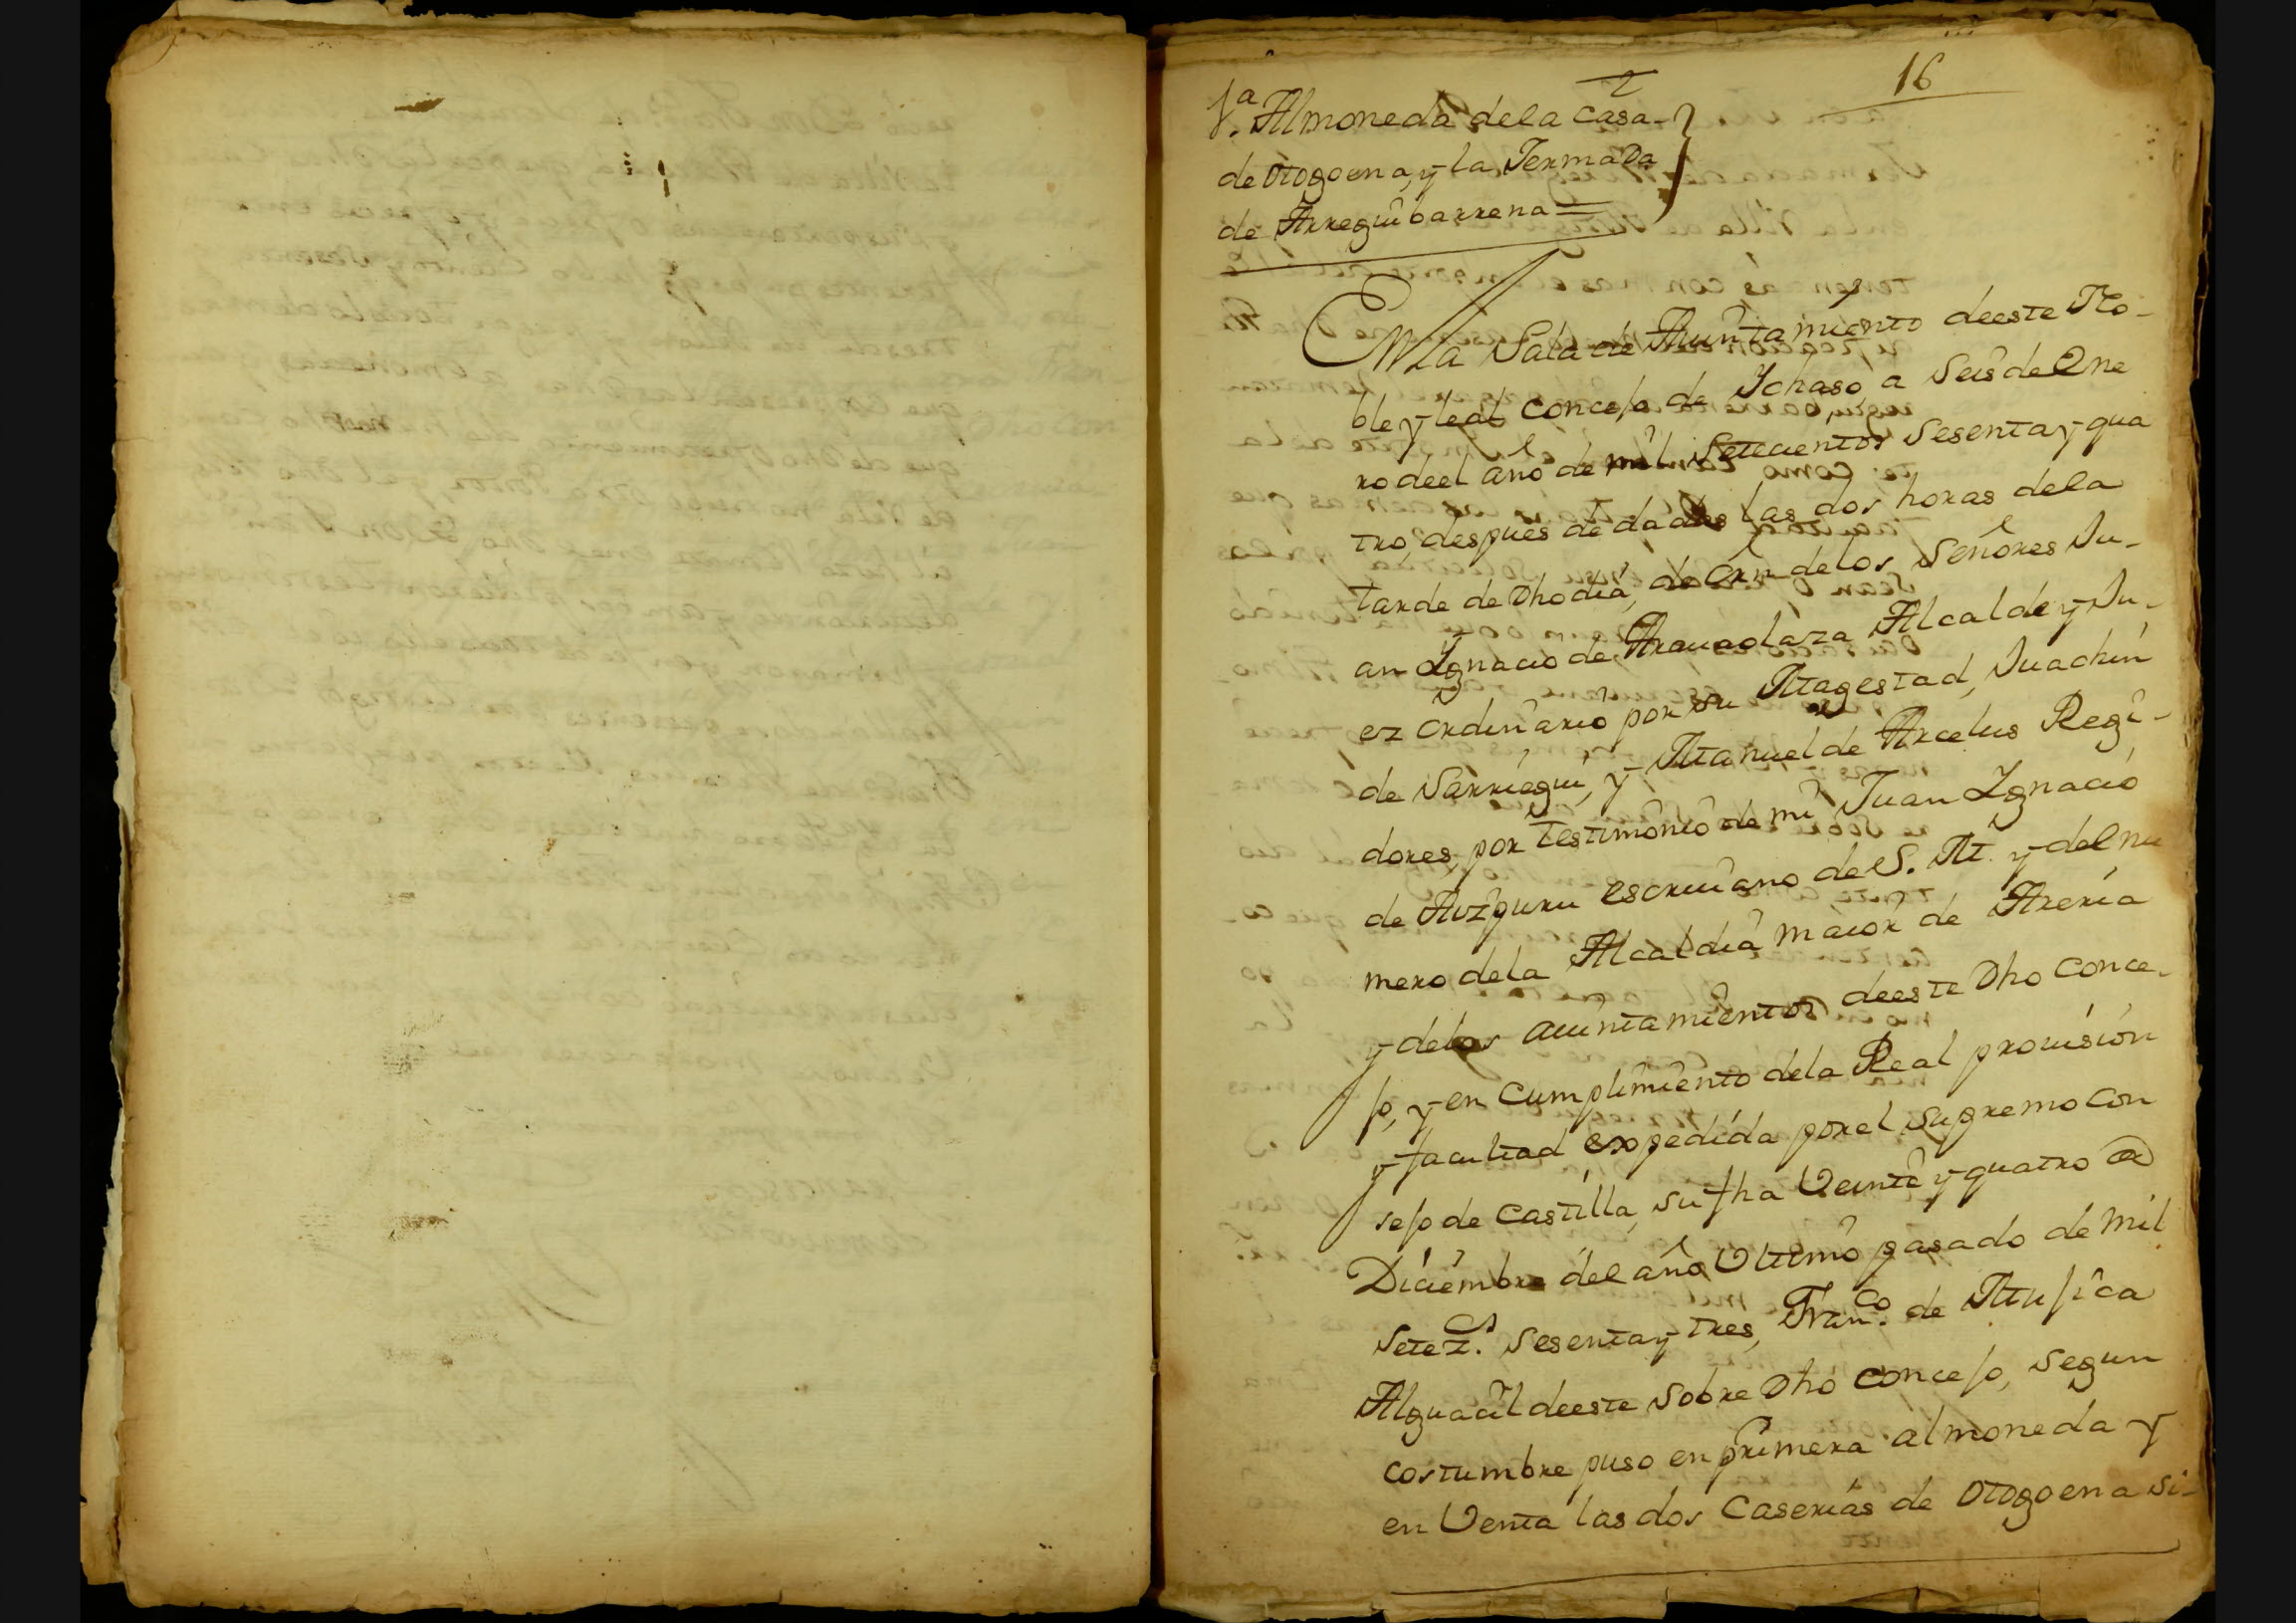 16
1.ª Almoneda dela Casa
de otogoena, y la Termada
de Arreguibarrena =
En la Sala de Aiuntamiento deeste No-
ble y leal concejo de Ychaso, a Seis de Ene
ro deel año de mil Setecientos Sesenta y qua
tro, despues de dadas las dos horas dela
tarde de dho dia, de orn delos Señores Ju-
an Ygnacio de Araucolaza Alcalde y Ju-
ez ordinario por su Magestad, Juachin
de Sarriegui, y Manuel de Arcelus Regi-
dores, por testimonio de mi Juan Ygnacio
de Auzguru escriuano de S. M. y del nu
mero dela Alcaldia maior de Areria
y delos aiuntamientos deeste dho Conce-
jo, y en Cumplimiento dela Real prouision
y facultad expedida por el Supremo Con
sejo de Castilla, su fha Veinte y quatro de
Diciembre del año Vltimo pasado de mil
Setez.os Sesenta y tres, Fran.co de Mujica
Alguacil deeste sobre dho concejo, segun
costumbre puso en primera almoneda y
en Venta las dos Caserias de otogoena si-